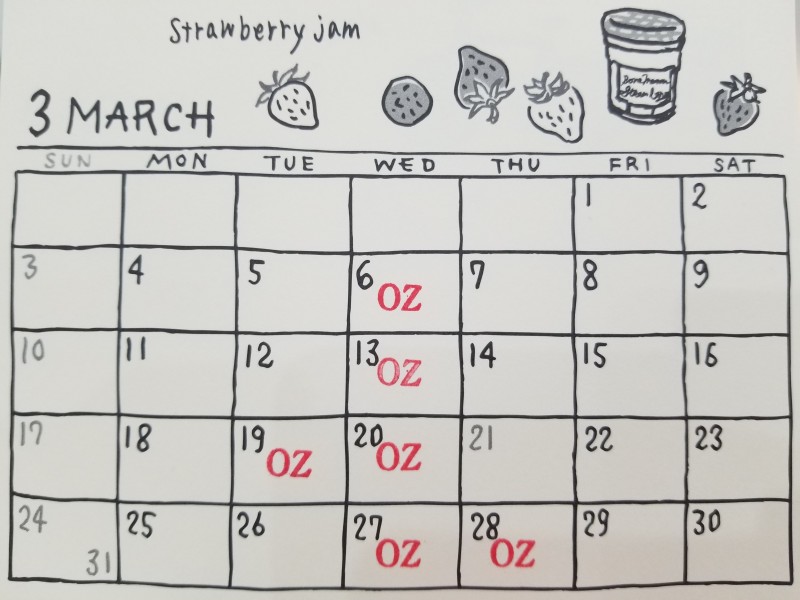 Strawberry jam
3 MARCH
SUN MON TUE WED THU FRI SAT
1 2
3 4 5 6 OZ 7 8 9
10 11 12 13 OZ 14 15 16
17 18 19 OZ 20 OZ 21 22 23
24 31 25 26 27 OZ 28 OZ 29 30